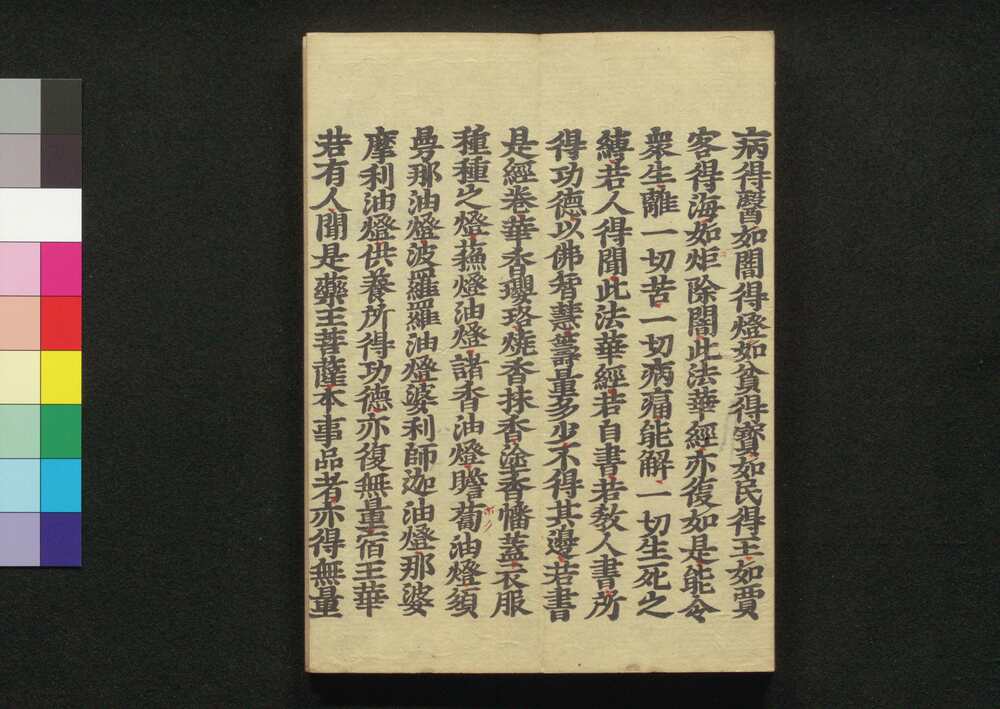 病得醫如闇得燈如貧得寶如民得王如賈
客得海如炬除闇此法華經亦復如是能令
衆生離一切苦一切病痛能解一切生死之
縛若人得聞此法華經若自書若敎人書所
得功德以佛智慧籌量多少不得其邊若書
是經卷華香瓔珞燒香抹香塗香幡蓋衣服
種種之燈蘓燈油燈諸香油燈瞻蔔油燈須
曼那油燈波羅羅油燈婆利師迦油燈那婆
摩利油燈供養所得功德亦復無量宿王華
若有人聞是藥王菩薩本事品者亦得無量